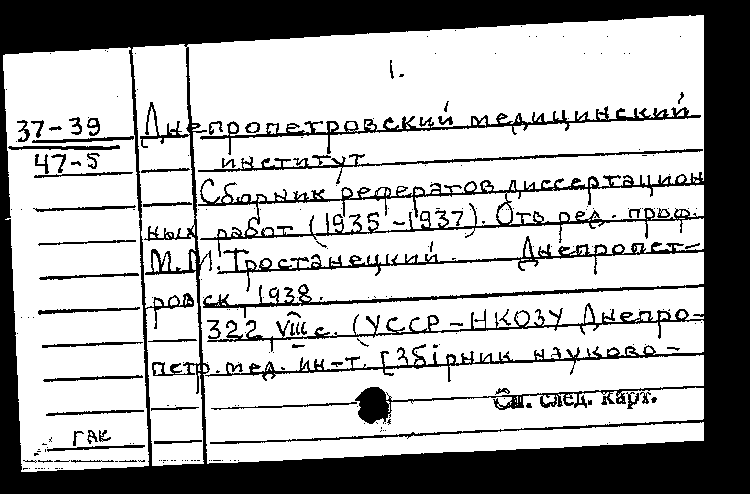 1.
37-39
47-5
Днепропетровский медицинский
институт
Сборник рефератов диссертацион
ных работ (1935-1937). Отв. ред. проф.
М.М. Тростанецкий. Днепропет-
ровск, 1938.
322, VIII с. (УССР-НКОЗУ Днепро-
петр. мед. ин-т. [Збірник науково-
См. след. карт.
ГАК